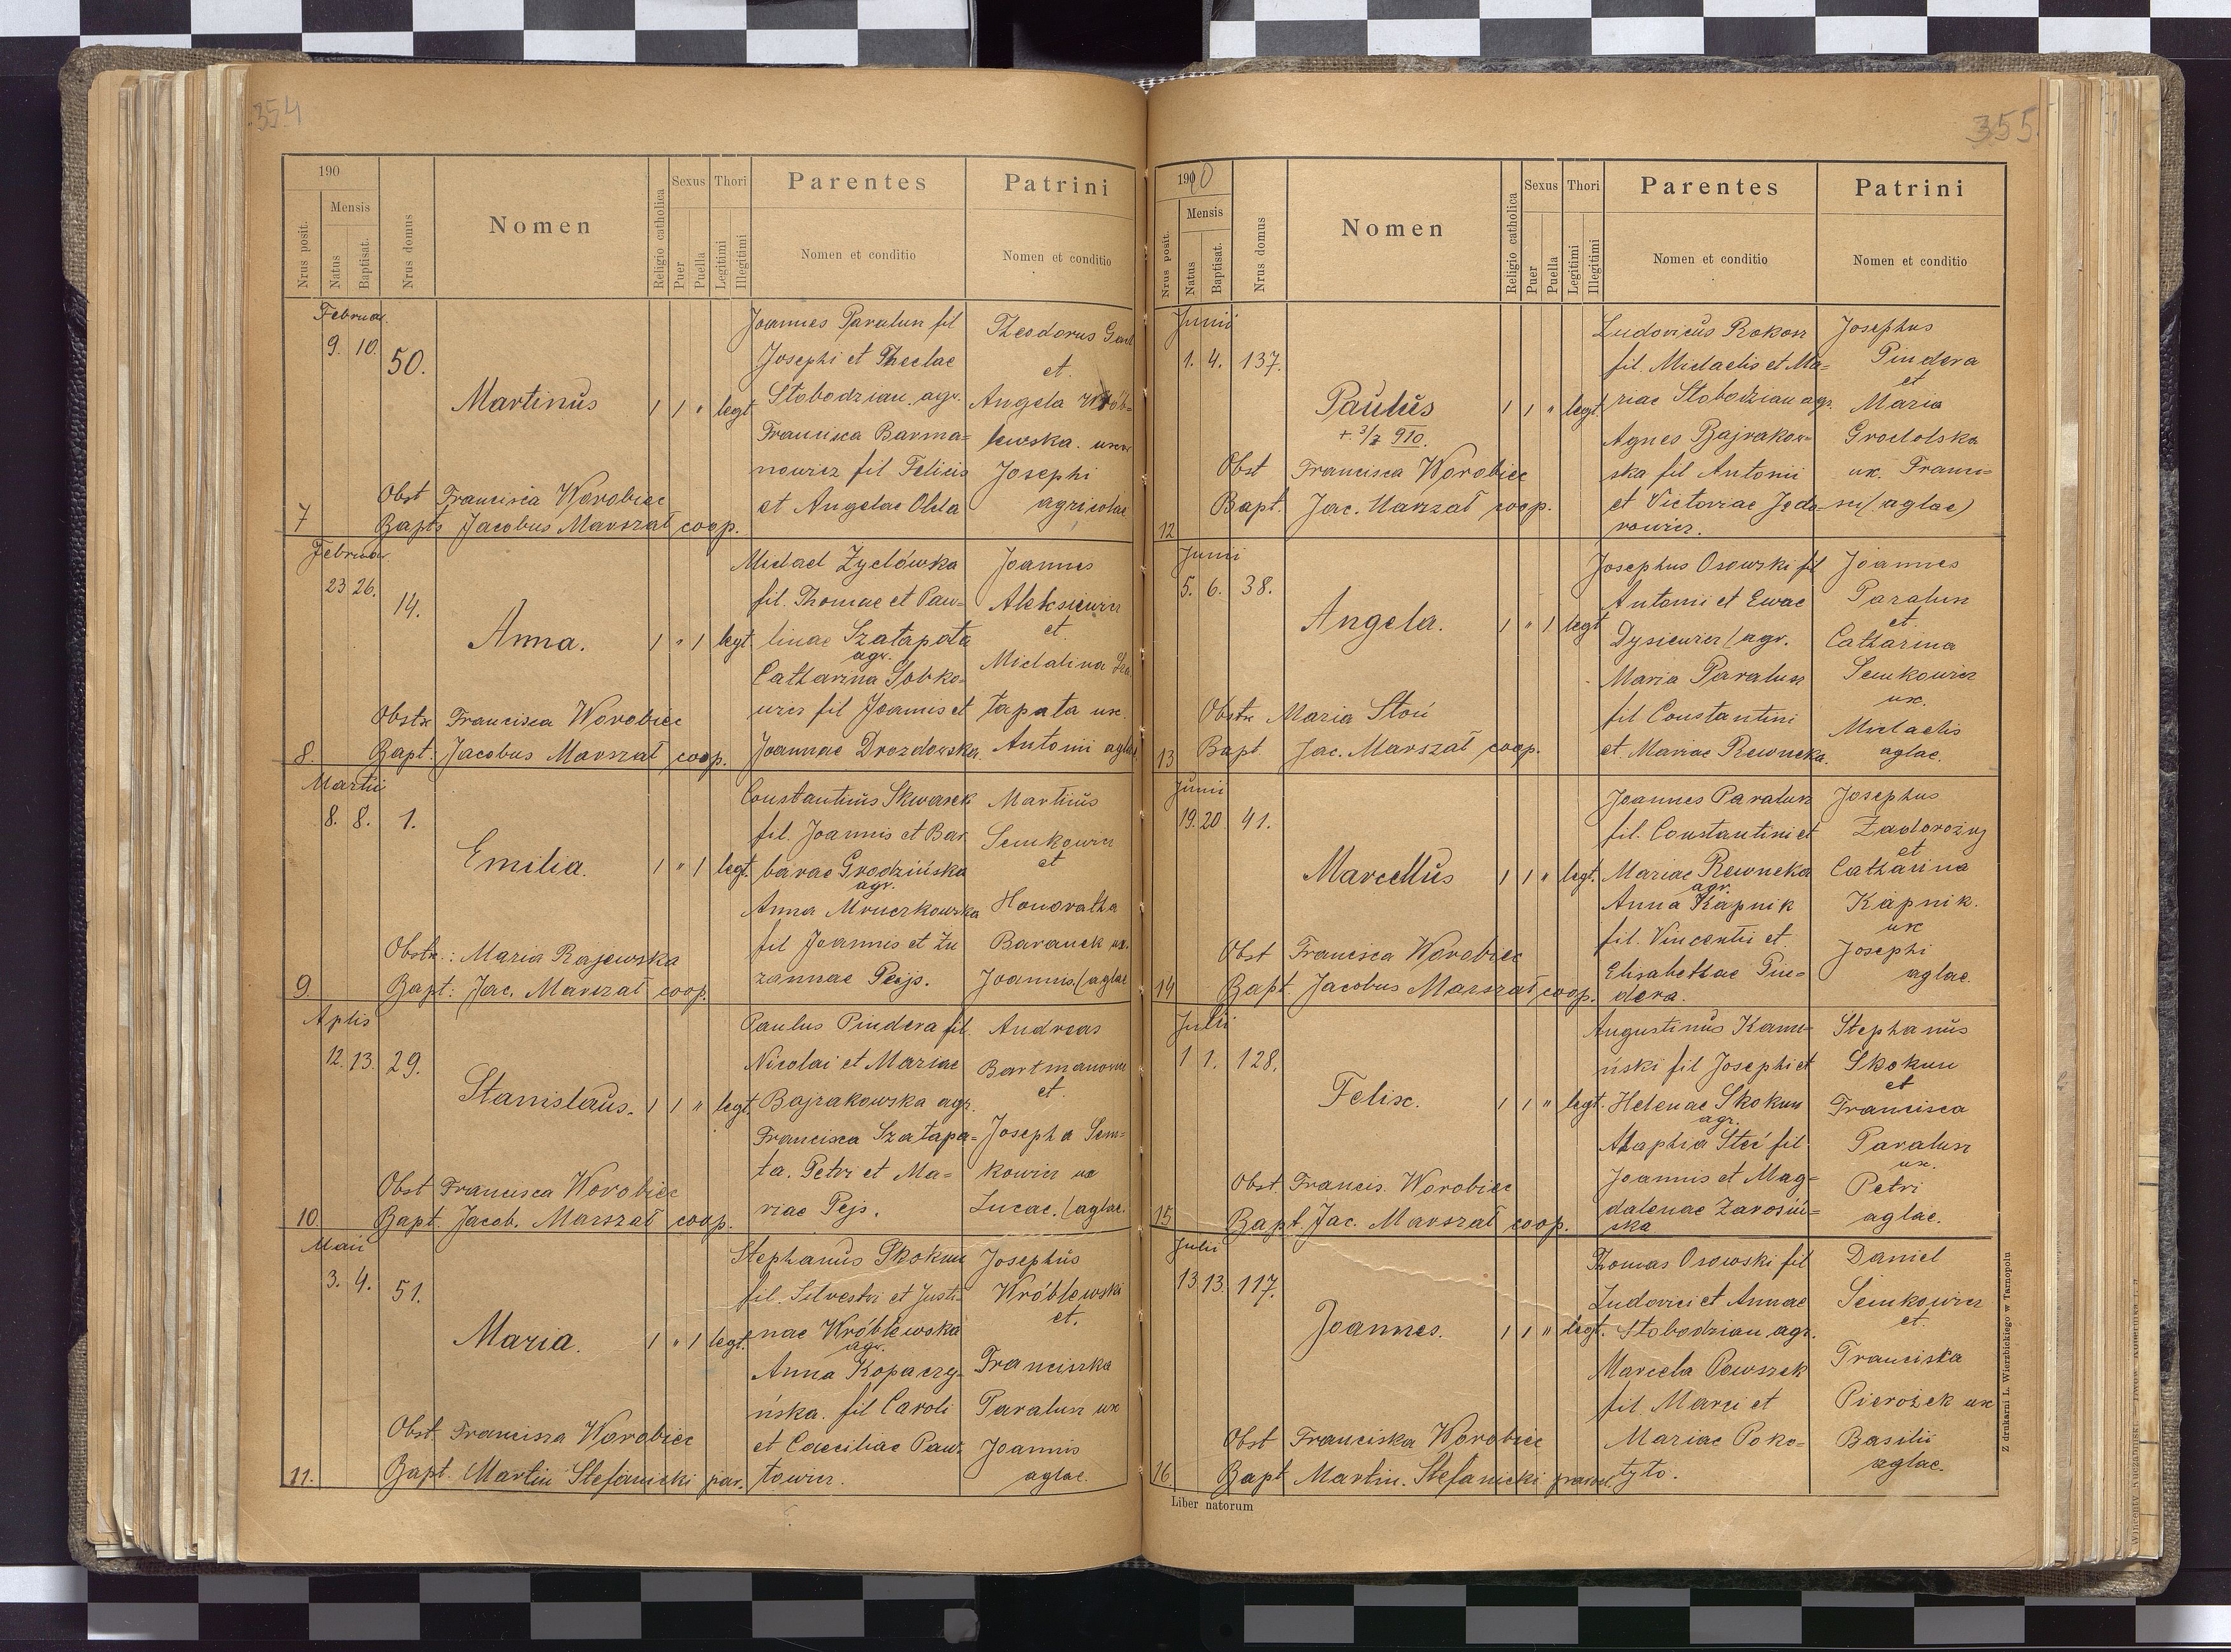 354
190
Mensis
Nrus posit.
Natus
Baptisat.
Nrus domus
Nomen
Religio catholica
Sexus
Puer
Puella
Thori
Legitimi
Illegitimi
Parentes
Nomen et conditio
Patrini
Nomen et conditio
Februar.
9. 10.
50.
Martinus
1 1 " legt
Joannes Paralun fil
Josephi et Theclae
Słobodzian agr.
Francisca Barma=
nowicz fil Felicis
et Angelae
Theodorus
et
Angela
lewska. uxor
Josephi
agricolae
Obst Francisca Worobiec
7 Bapt. Jacobus Marszał coop.
Februar
23 26.
14.
Anna.
1 " 1 legt
Michael Zyclówka
fil. Thomae et Pau=
linae Szałapata
agr.
Catharina Sobko=
wicz fil Joannis et
Joannae Drozdowska.
Joannes
Aleksiewicz
et
Michalina Sza
łapata ux.
Antonii aglae
Obstx Francisca Worobiec
8. Bapt: Jacobus Marszał coop.
Martii
8. 8. 1.
Emilia.
1 " 1 legt.
Constantinus Skwarek
fil. Joannis et Bar
barae Grodzińska
agr.
Anna Mruczkowska
fil Joannis et Zu
zannae Pejs.
Martinus
Semkowicz
et
Honoratha
Baranek ux.
Joannis (aglae
Obstx.: Maria Rajewska
9. Bapt: Jac. Marszał coop.
Aplis
12. 13. 29.
Stanislaus.
1 1 " legt.
Paulus Pindera fil.
Nicolai et Mariae
Bajrakowska agr.
Francisca Szałapa=
ta. Petri et Ma=
riae Pejs.
Andreas
Bartmanowicz
et
Josepha Sem=
kowicz ux
Lucae. (aglae.
Obst Francisca Worobiec
10 Bapt. Jacob. Marszał coop.
Maii
3. 4. 51.
Maria.
1 " 1 legt.
Stephanus Skokun
fil. Silvestri et Justi=
nae Wróblewska
agr.
Anna Kopaczy=
ńska. fil Caroli
et Caeciliae Paw
łowicz.
Josephus
Wróblewski
et.
Franciszka
Paralun ux
Joannis
aglae.
Obst Francisca Worobiec
11. Bapt. Martin Stefanicki par.
355
1910
Mensis
Nrus posit.
Natus
Baptisat.
Nrus domus
Nomen
Religio catholica
Sexus
Puer
Puella
Thori
Legitimi
Illegitimi
Parentes
Nomen et conditio
Patrini
Nomen et conditio
Junii
1. 4. 137.
Paulus
+. 3/7 910.
1 1 " legt.
Ludovicus Rokosz
fil. Michaelis et Ma=
riae Słobodzian agr.
Agnes Bajrakow=
ska fil Antonii
et Victoriae
rowicz.
Josephus
Pindera
et
Maria
Grodolska
ux. Franci=
sci (aglae)
Obst Francisca Worobiec
12 Bapt. Jac. Marszał coop.
Junii
5. 6. 38.
Angela.
1 " 1 legt
Josephus Osowski fil
Antonii et Ewae
Dysiewicz (agr.
Maria Paralun
fil Constantini
et Mariae Rewneka.
Joannes
Paralun
et
Catharina
Semkowicz
ux.
Michaelis
aglae.
Obstx Maria Stoń
13 Bapt Jac. Marszał coop.
Junii
19. 20 41.
Marcellus
1 1 " legt.
Joannes Paralun
fil. Constantini et
Mariae Rewneka
agr.
Anna Kapnik
fil. Vincentii et
Elisabethae Pin=
dera.
Josephus
Zadorożny
et
Catharina
Kapnik.
ux
Josephi
aglae.
Obst Francisca Worobiec
14 Bapt. Jacobus Marszał coop.
Julii
1 1. 128.
Felix.
1 1 " legt.
Augustinus Kami=
ński fil Josephi et
Helenae Skokun
agr.
Ahaphia Steć fil
Joannis et Mag=
dalenae Zarosiń=
ska
Stephanus
Skokun
et
Francisca
Paralusz
ux.
Petri
aglae.
Obst. Francis. Worobiec
15 Bapt. Jac. Marszał coop.
Julii
13. 13. 117.
Joannes.
1 1 " legt.
Thomas Osowski fil
Ludovici et Annae
Słobodzian agr.
Marcela Pawszek
fil. Marci et
Mariae Poko=
tyło.
Daniel
Semkowicz
et
Franciska
Pierożek ux
Basilii
aglae.
Obst Franciska Worobiec
16. Bapt Martin. Stefanicki
Liber natorum
Z drukarni L. Wierzbickiego w Tarnopolu